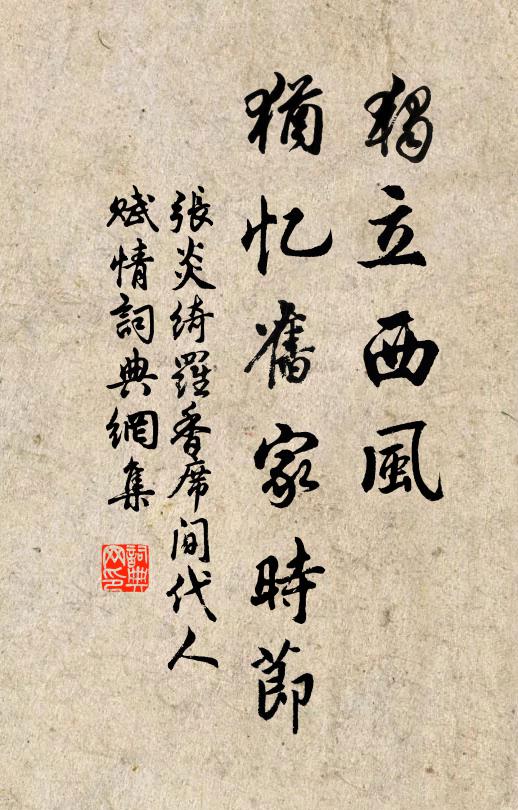 獨立西風
猶忆舊家時節
張炎綺羅香席间代人
赋情詞典網集
詞典
网印